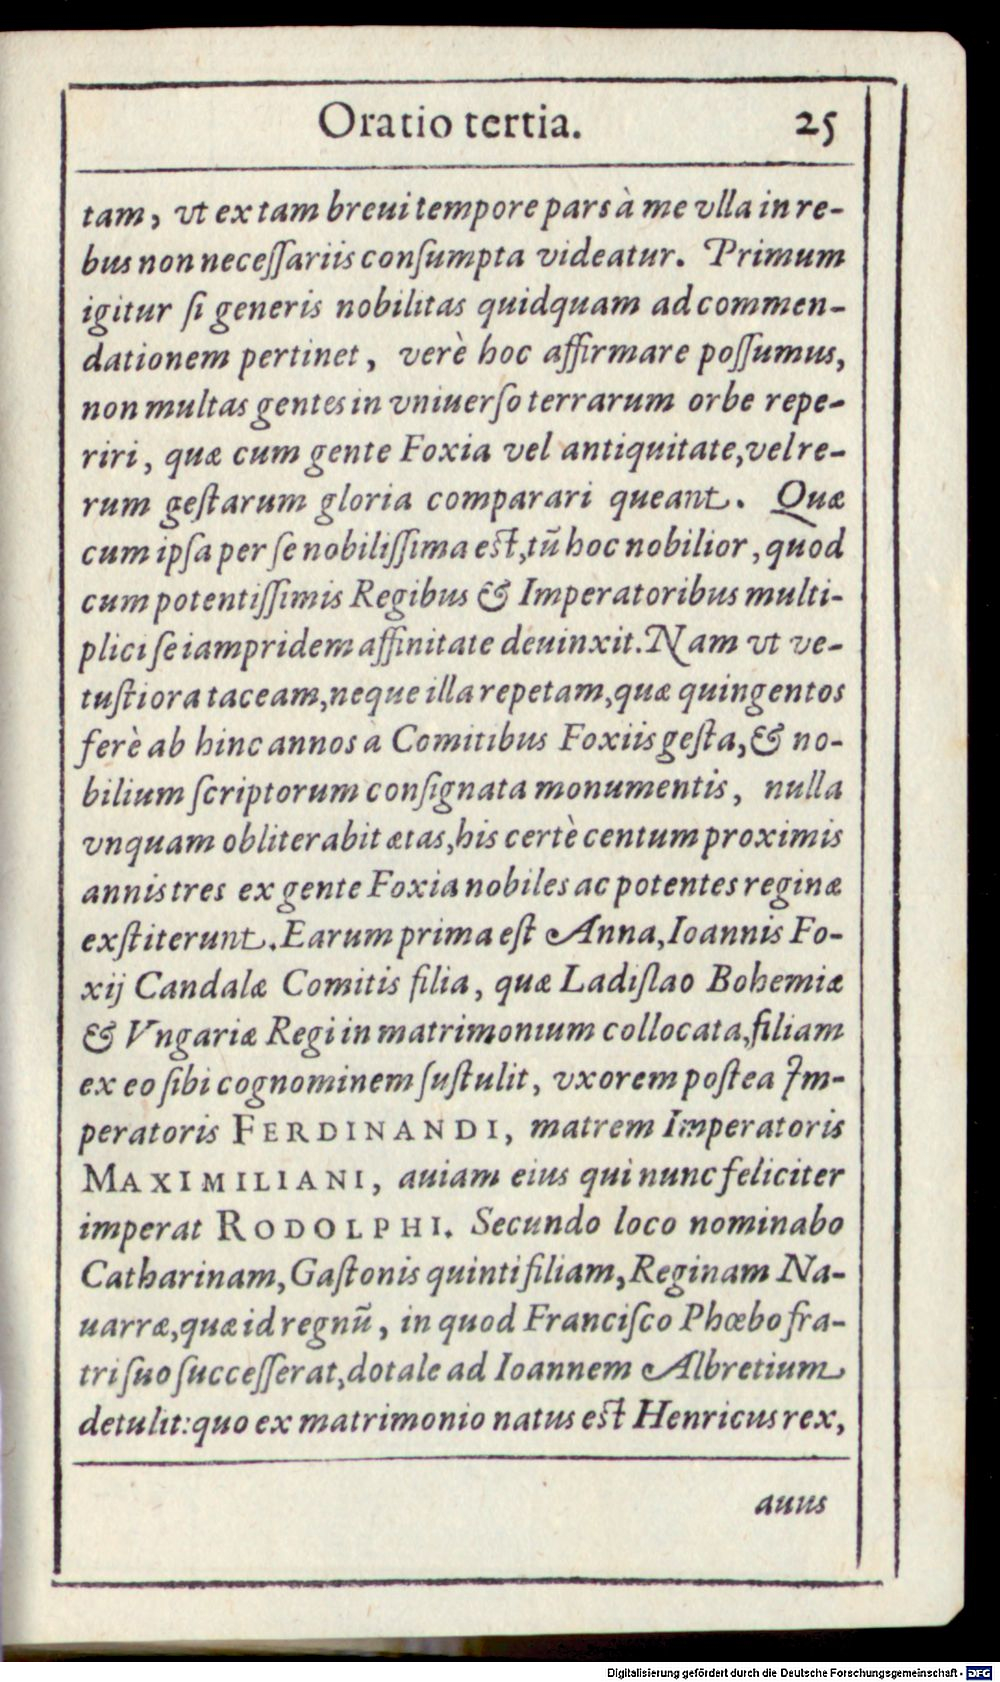 Oratio tertia. 25
tam, vt ex tam breui tempore pars à me vlla in re-
bus non neceſſariis conſumpta videatur. Primum
igitur ſi generis nobilitas quidquam ad commen-
dationem pertinet, verè hoc affirmare poſſumus,
non multas gentes in vniuerſo terrarum orbe repe-
riri, quæ cum gente Foxia vel antiquitate, vel re-
rum geſtarum gloria comparari queant. Quæ
cum ipſa per ſe nobiliſſima eſt, tū hoc nobilior, quod
cum potentiſſimis Regibus & Imperatoribus multi-
plici ſe iampridem affinitate deuinxit. Nam vt ve-
tuſtiora taceam, neque illa repetam, quæ quingentos
ferè ab hinc annos a Comitibus Foxiis geſta, & no-
bilium ſcriptorum conſignata monumentis, nulla
vnquam obliterabit ætas, his certè centum proximis
annis tres ex gente Foxia nobiles ac potentes reginæ
exſtiterunt. Earum prima eſt Anna, Ioannis Fo-
xij Candalæ Comitis filia, quæ Ladiſlao Bohemiæ
& Vngariæ Regi in matrimonium collocata, filiam
ex eo ſibi cognominem ſuſtulit, vxorem poſtea Im-
peratoris FERDINANDI, matrem Imperatoris
MAXIMILIANI, auiam eius qui nunc feliciter
imperat RODOLPHI. Secundo loco nominabo
Catharinam, Gaſtonis quinti filiam, Reginam Na-
uarræ, quæ id regnū, in quod Franciſco Phœbo fra-
tri ſuo ſucceſſerat, dotale ad Ioannem Albretium
detulit: quo ex matrimonio natus eſt Henricus rex,
auus
Digitalisierung gefördert durch die Deutsche Forschungsgemeinschaft - DFG